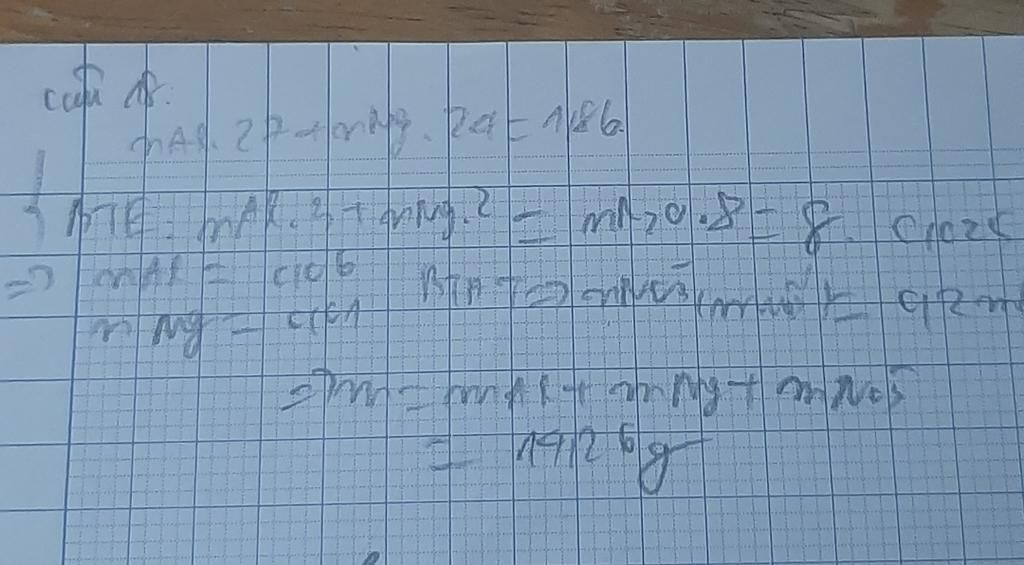 câu 18:
nAl.27 + nMg.24 = 1,86.
BTE: nAl.3 + nMg.2 = nN2O.8 = 8. 0,025
=> nAl = 0,06
nMg = 0,01 => nNO3 = 0,2 m
=> m = mAl + mMg + mNO3
= 14,26g